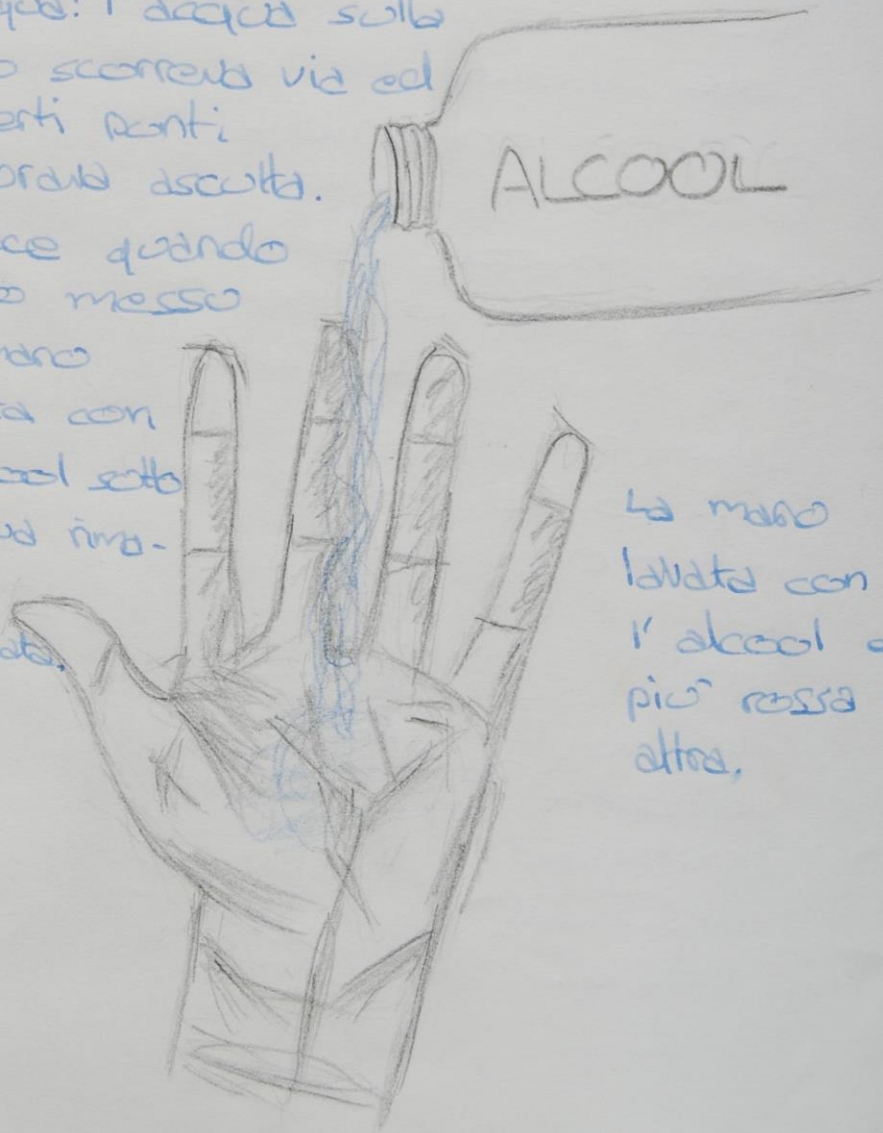 l'acqua sulla
scorreva via ed
certi punti
asciutta.
quando
messo
mano
con
sotto
rima-
ALCOOL
La mano
lavata con
l'alcool
più rossa
altra.